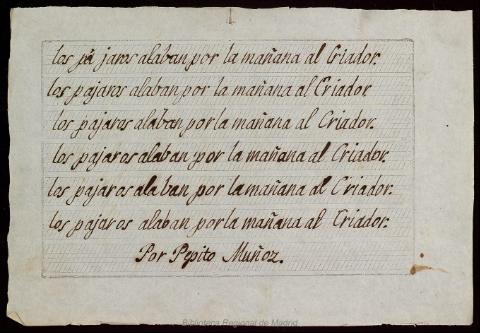 los pá jaros alaban por la mañana al Criador.
los pajaros alaban por la mañana al Criador
los pajaros alaban por la mañana al Criador.
los pajaros alaban por la mañana al Criador.
los pajaros alaban por la mañana al Criador.
los pajaros alaban por la mañana al Criador.
Por Pepito Muñoz.
Biblioteca Regional de Madrid